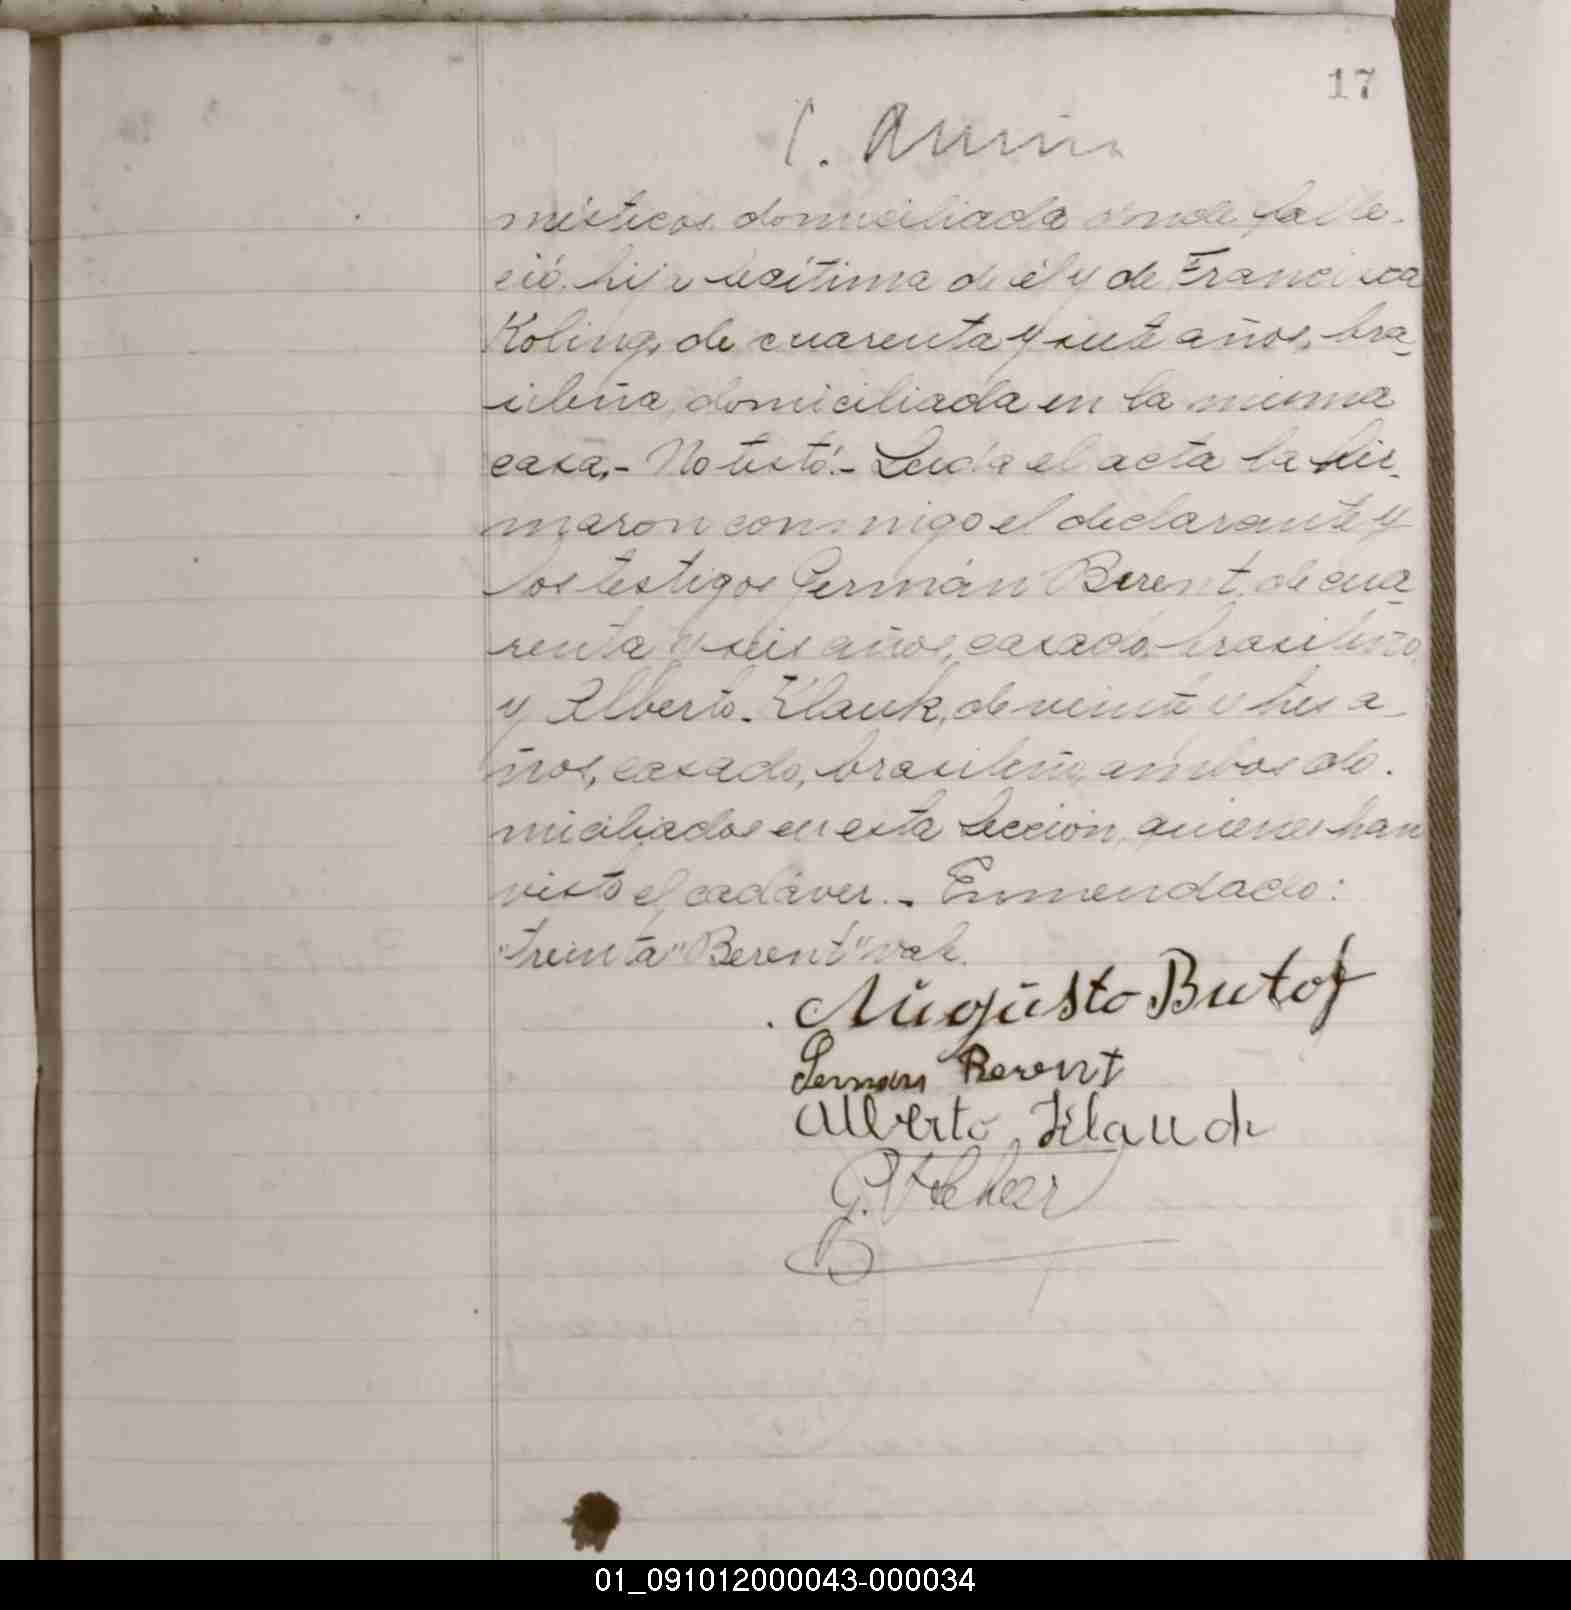 17
mésticos, domiciliada donde falle-
ció, hija lecítima de él y de Francisca
Koling, de cuarenta y siete años, bra-
sileña, domiciliada en la misma
casa.- No testó.- Leída el acta la fir-
maron conmigo el declarante y
los testigos Germán Berent, de cua-
renta y seis años, casado, brasileño
y Alberto Klauk, de veinte y tres a-
ños, casado, brasileño, ambos do-
miciliados en esta sección, quienes han
visto el cadáver.- Enmendado:
"treinta" "Berent" vale.
Augusto Butof
German Berent
Alberto Klauck
01_091012000043-000034